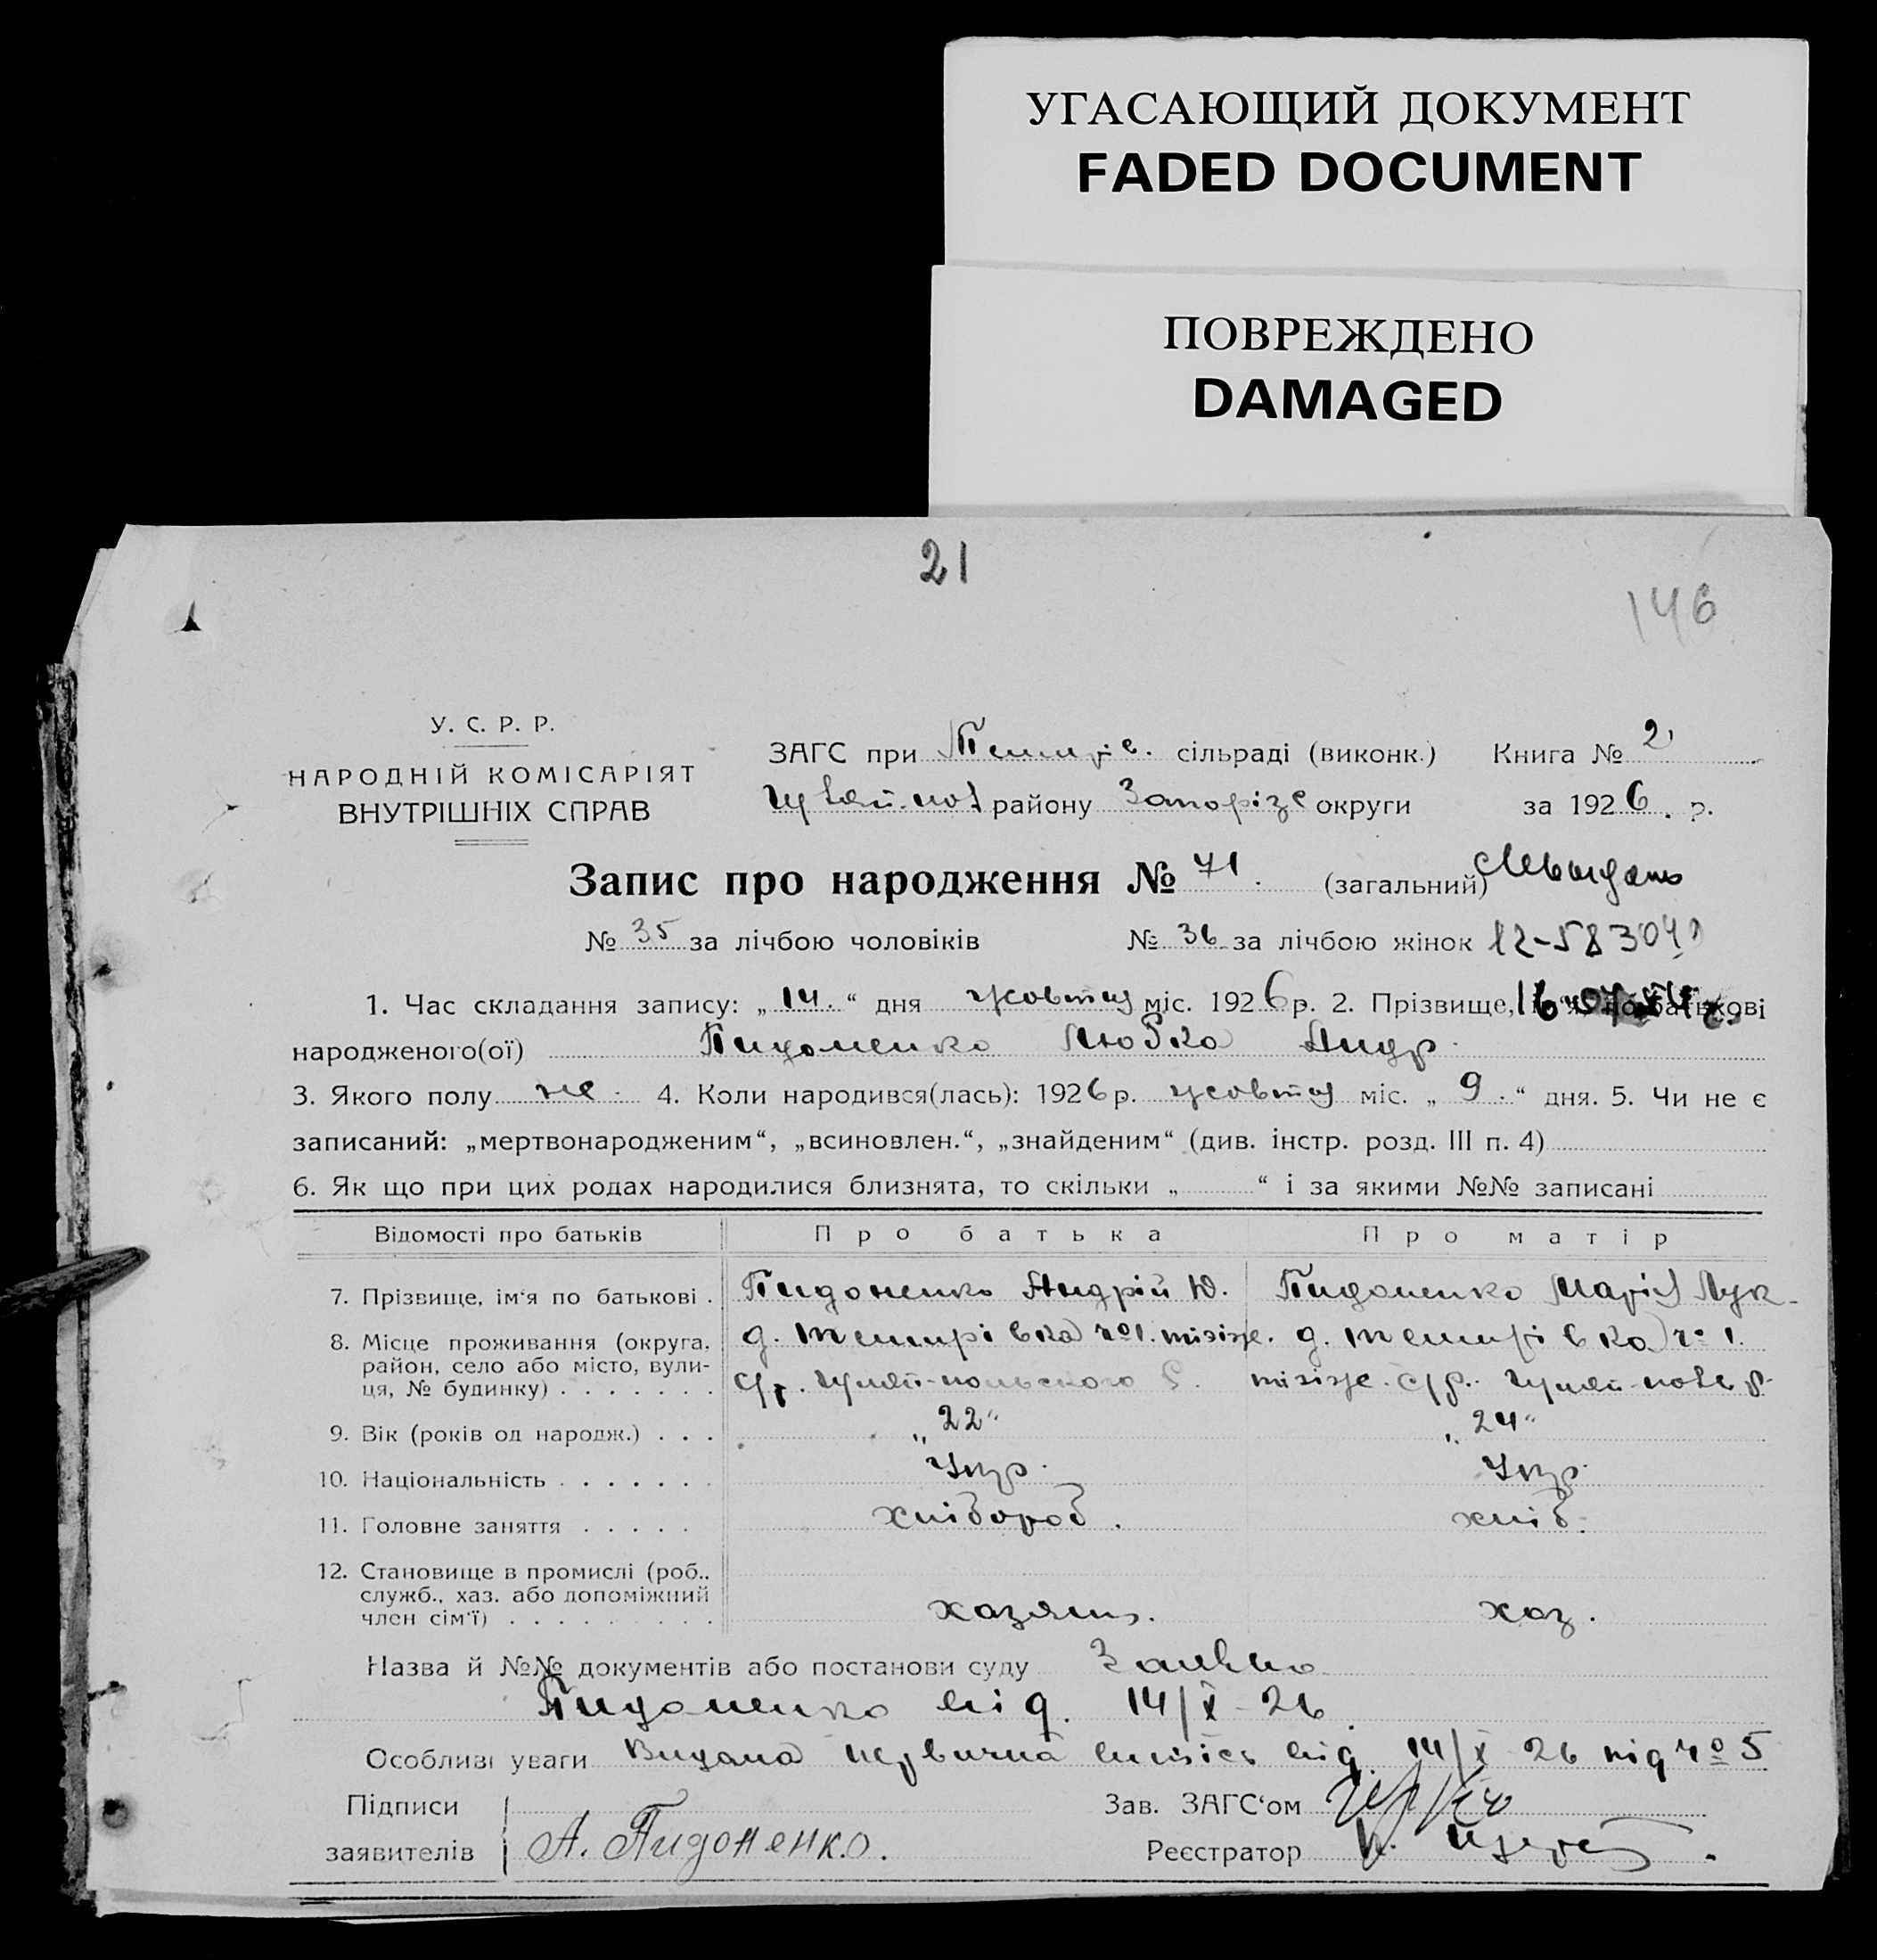 УГАСАЮЩИЙ ДОКУМЕНТ
FADED DOCUMENT
ПОВРЕЖДЕНО
DAMAGED
21
146
У. С. Р. Р.
НАРОДНІЙ КОМІСАРІЯТ
ВНУТРІШНІХ СПРАВ
ЗАГС при сільраді (виконк.) Книга № 2
району Запоріз округи за 1926 р.
Запис про народження № 71. (загальний)
№ 35 за лічбою чоловіків № 36 за лічбою жінок 12-583041
1. Час складання запису: „ 14. “ дня жовтня міс. 1926 р. 2. Прізвище, ім'я, по батькові
народженого(ої) Пидоненко Любка Андр.
3. Якого полу же. 4. Коли народився(лась): 1926 р. жовтня міс. „ 9. “ дня. 5. Чи не є
записаний: „мертвонародженим“, „всиновлен.“, „знайденим“ (див. інстр. розд. III п. 4)
6. Як що при цих родах народилися близнята, то скільки „ “ і за якими №№ записані
Відомості про батьків Про батька Про матір
7. Прізвище, ім'я по батькові . Пидоненко Андрій Ю. Пидоненко Марія Лук.
8. Місце проживання (округа, д. Темирівка №1. д. Темирівка № 1.
район, село або місто, вули- с/р. Гуляй-польского р. с/р. Гуляй-поль р.
ця, № будинку) . . . . . . .
9. Вік (років од народж.) . . . „22“ „24“
10. Національність . . . . . . . Укр. Укр.
11. Головне заняття . . . . . хлібороб. хліб.
12. Становище в промислі (роб.,
служб., хаз. або допоміжний
член сім'ї) . . . . . . . . . хазяїн. хаз.
Назва й №№ документів або постанови суду Заява
Пидоненко від. 14/X-26.
Особливі уваги Видана первична випись від. 14/X 26 під № 5
Підписи Зав. ЗАГС'ом
заявителів А. Пидоненко. Реєстратор